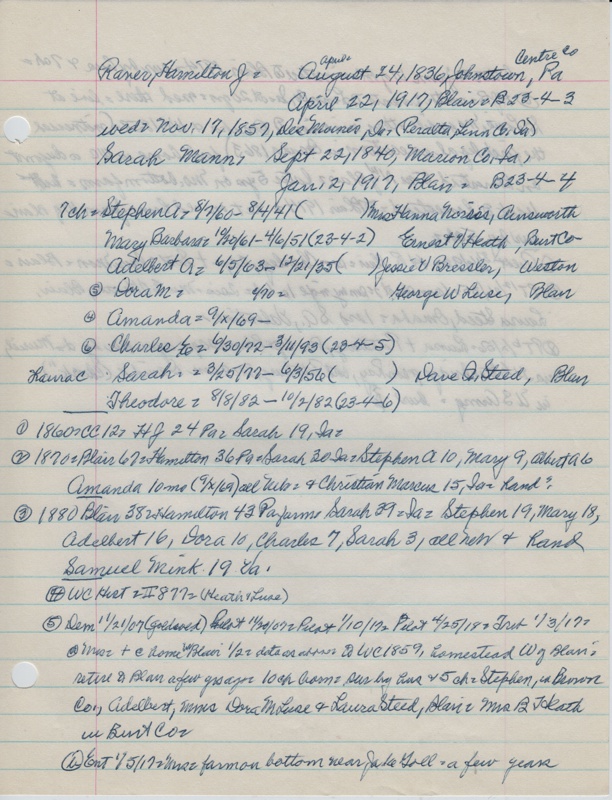 Centre Co
april
Raver, Hamilton J = August 24, 1836, Johnstown, Pa
April 22, 1917, Blair = B23-4-3
wed = Nov. 17, 1857, Des Moines, Ia = (Peralta, Linn Co. Ia)
Sarah Mann = Sept 22, 1840, Marion Co, Ia,
Jan. 2, 1917, Blair = B23-4-4
7ch = Stephen A = 8/7/60 - 8/4/41 ( ) Mrs Hanna Norris, Ainsworth
Mary Barbara = 12/20/61 - 4/6/51 (23-4-2) Ernest V Heath Burt Co
Adelbert A = 6/5/63 - 12/21/35 ( ) Jessie V Bressler, Weston
⑤ Dora M = 4/70 = George W Luse, Blair
④ Amanda = 9/x/69 -
⑥ Charles = 6/30/72 - 3/11/93 (23-4-5)
Laura C Sarah = 3/25/77 - 6/3/56 ( ) Dave A. Steed, Blair
Theodore = 8/8/82 - 10/2/82 (23-4-6)
① 1860 = CC 12 = HJ 24 Pa = Sarah 19, Ia =
② 1870 = Blair 67 = Hamilton 36 Pa = Sarah 30 Ia = Stephen A 10, Mary 9, Albert A 6
Amanda 10 mo (9/x/69) all Neb = & Christian Marcus 15, Ia = hand?
③ 1880 Blair 38 = Hamilton 43 Pa farme Sarah 39 = Ia = Stephen 19, Mary 18,
Adelbert 16, Dora 10, Charles 7, Sarah 3, all neb & Rand
Samuel Mink 19 Ia.
④ WC Hist = II 877 = (Heath & Luse)
⑤ Dem 11/21/07 (gold wed) Pilot 11/20/07 = Pilot 1/10/17 = Pilot 4/25/18 = Trib 1/3/17 =
ⓐ Mrs = + @ home in Blair 1/2 = data as above = to WC 1859, homestead W of Blair =
retire to Blair a few yrs ago = 10ch born = sur by hus & 5 ch = Stephen, in Brown
Co., Adelbert, Mmes Dora M Luse & Laura Steed, Blair = Mrs B F Heath
in Burt Co =
ⓑ Ent 1/5/17 = Mrs = farm on bottom near Jake Goll = a few years